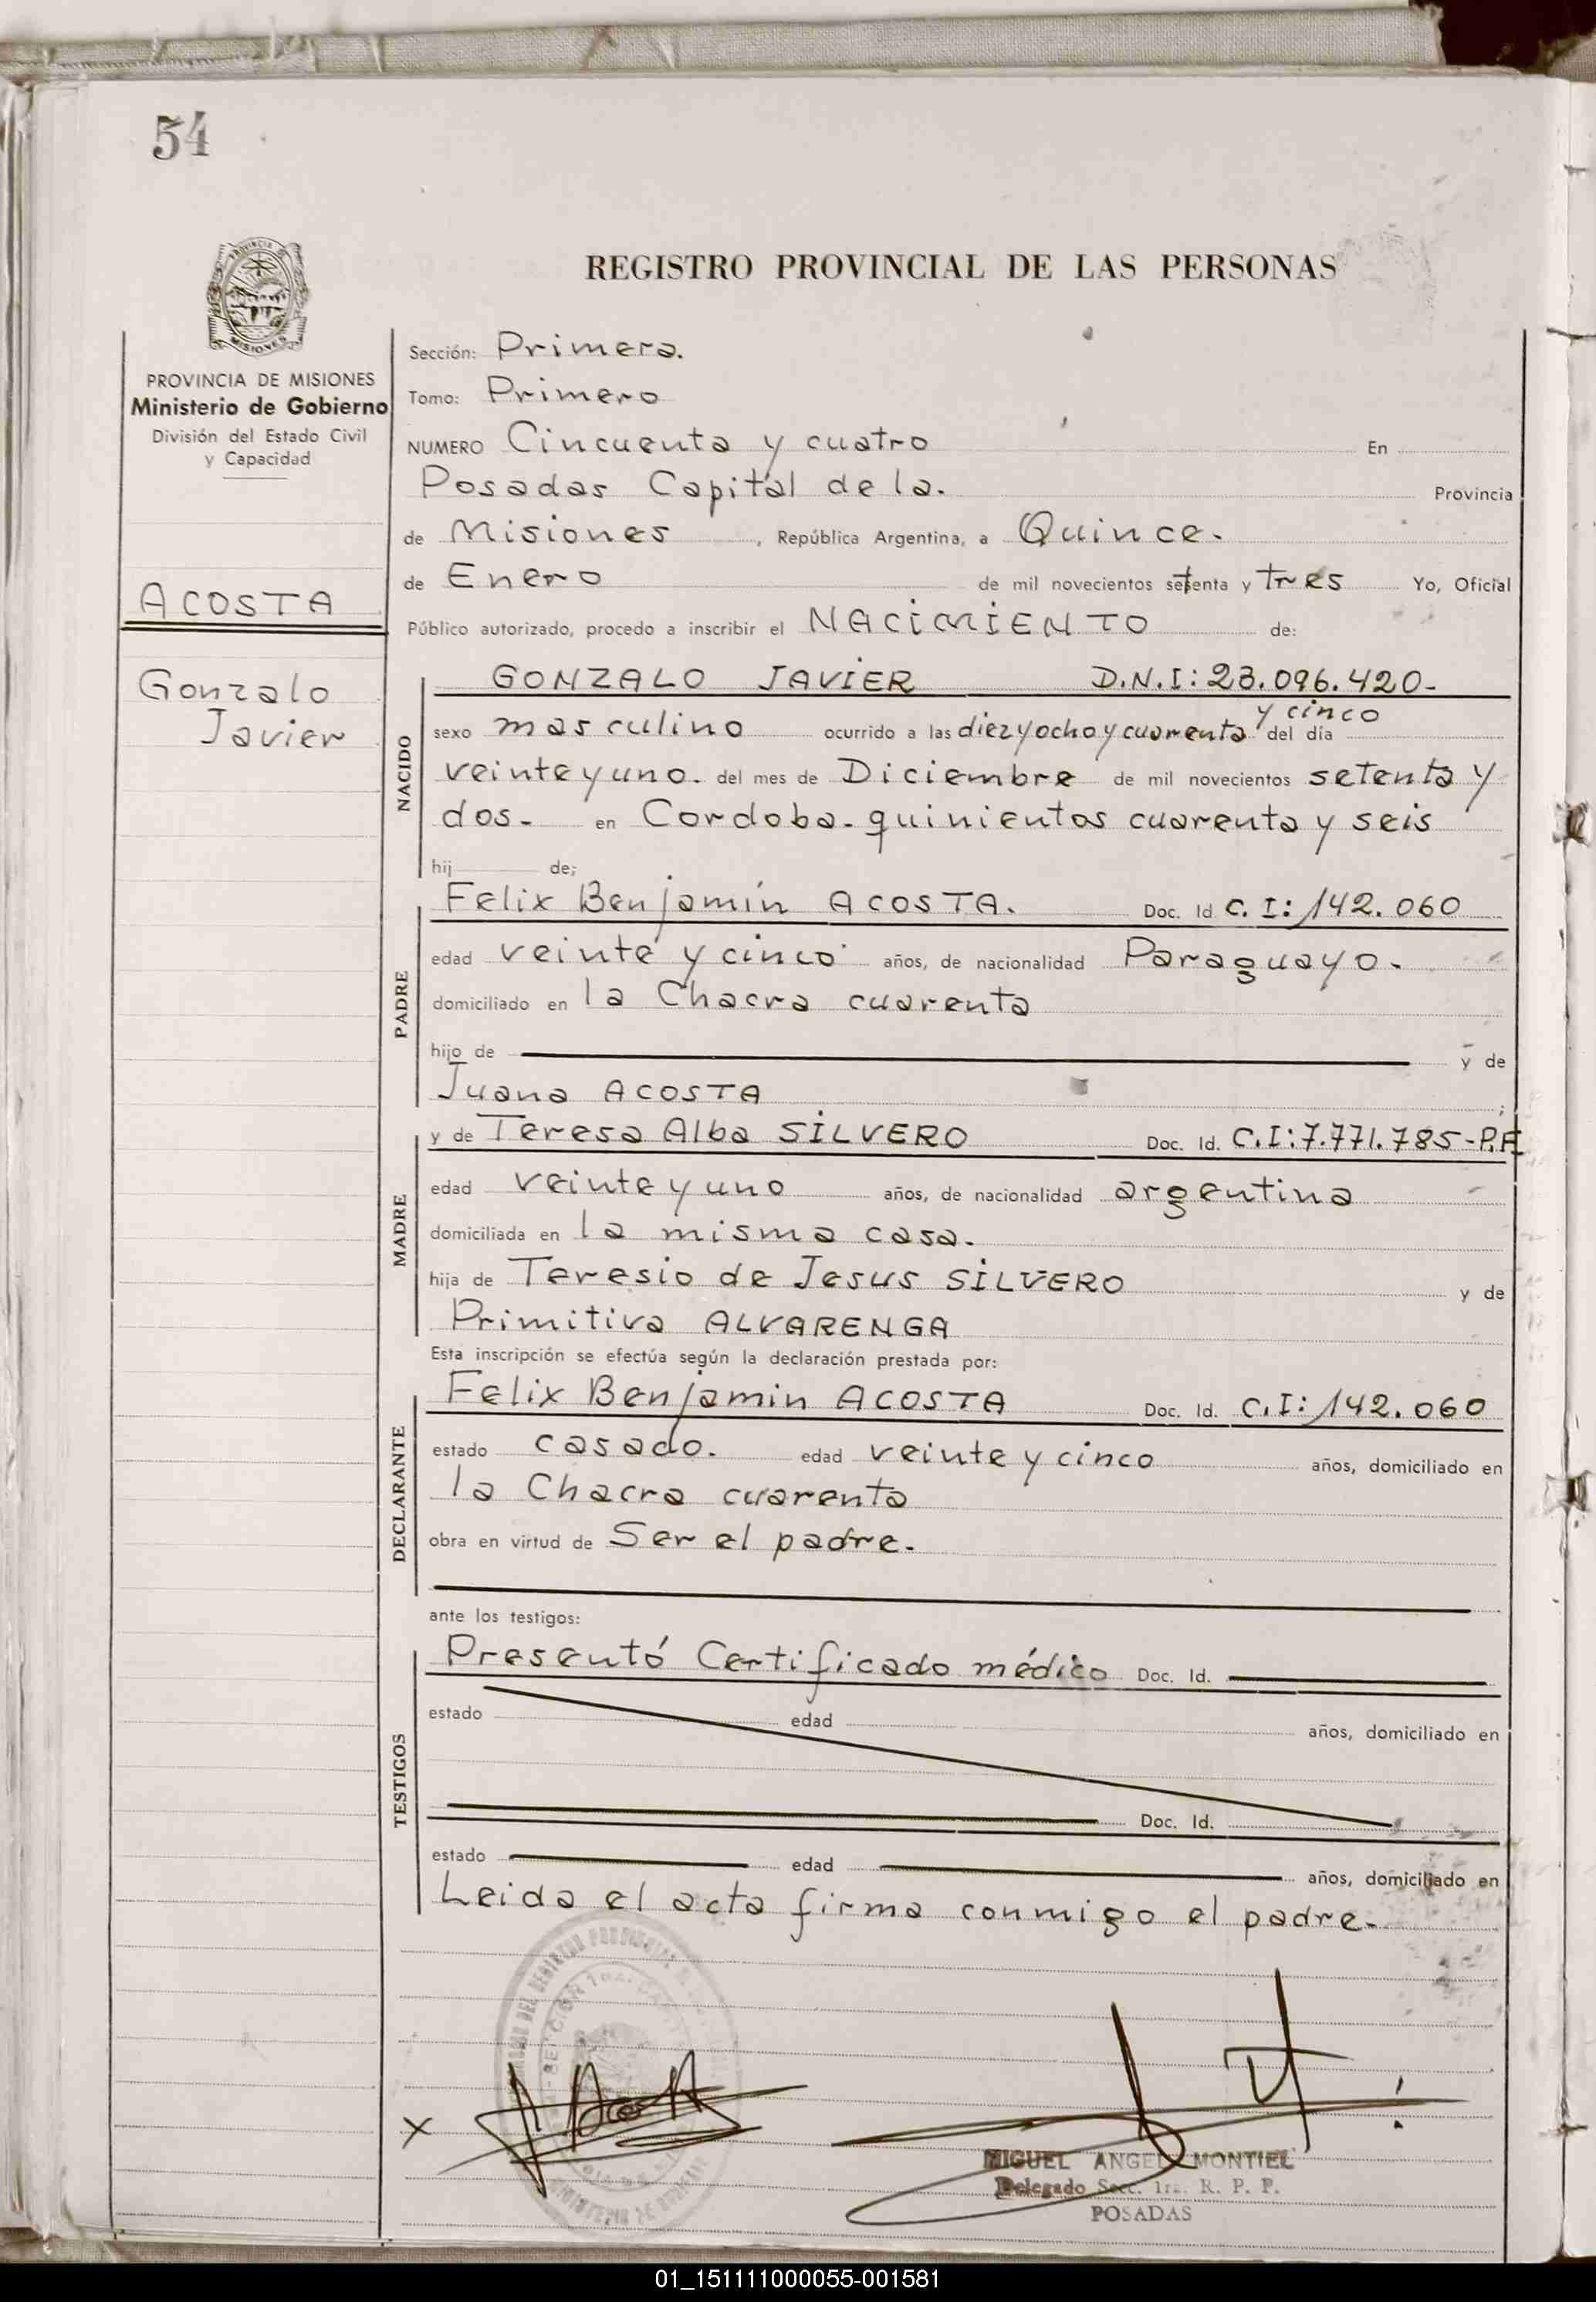 54
PROVINCIA
MISIONES
REGISTRO PROVINCIAL DE LAS PERSONAS
PROVINCIA DE MISIONES
Ministerio de Gobierno
División del Estado Civil
y Capacidad
ACOSTA
Gonzalo
Javier
Sección: Primera.
Tomo: Primero
NUMERO Cincuenta y cuatro En
Posadas Capital de la. Provincia
de Misiones, República Argentina, a Quince.
de Enero de mil novecientos setenta y tres Yo, Oficial
Público autorizado, procedo a inscribir el NACIMIENTO de:
NACIDO
GONZALO JAVIER D.N.I: 23.096.420-
sexo masculino ocurrido a las diez y ocho y cuarenta y cinco del día
veinte y uno. del mes de Diciembre de mil novecientos setenta y
dos. en Cordoba. quinientos cuarenta y seis
hij de;
PADRE
Felix Benjamin ACOSTA. Doc. Id. C. I: 142.060
edad veinte y cinco años, de nacionalidad Paraguayo.
domiciliado en la Chacra cuarenta
hijo de y de
Juana ACOSTA ;
MADRE
y de Teresa Alba SILVERO Doc. Id. C.I: 7.771.785-P.F
edad veinte y uno años, de nacionalidad argentina
domiciliada en la misma casa.
hija de Teresio de Jesus SILVERO y de
Primitiva ALVARENGA
Esta inscripción se efectúa según la declaración prestada por:
DECLARANTE
Felix Benjamin ACOSTA Doc. Id. C.I: 142.060
estado casado. edad veinte y cinco años, domiciliado en
la Chacra cuarenta
obra en virtud de Ser el padre.
ante los testigos:
TESTIGOS
Presentó Certificado médico Doc. Id.
estado edad años, domiciliado en
Doc. Id.
estado edad años, domiciliado en
Leida el acta firma conmigo el padre.
X
MIGUEL ANGEL MONTIEL
Delegado Secc. 1ra. R. P. P.
POSADAS
01_151111000055-001581